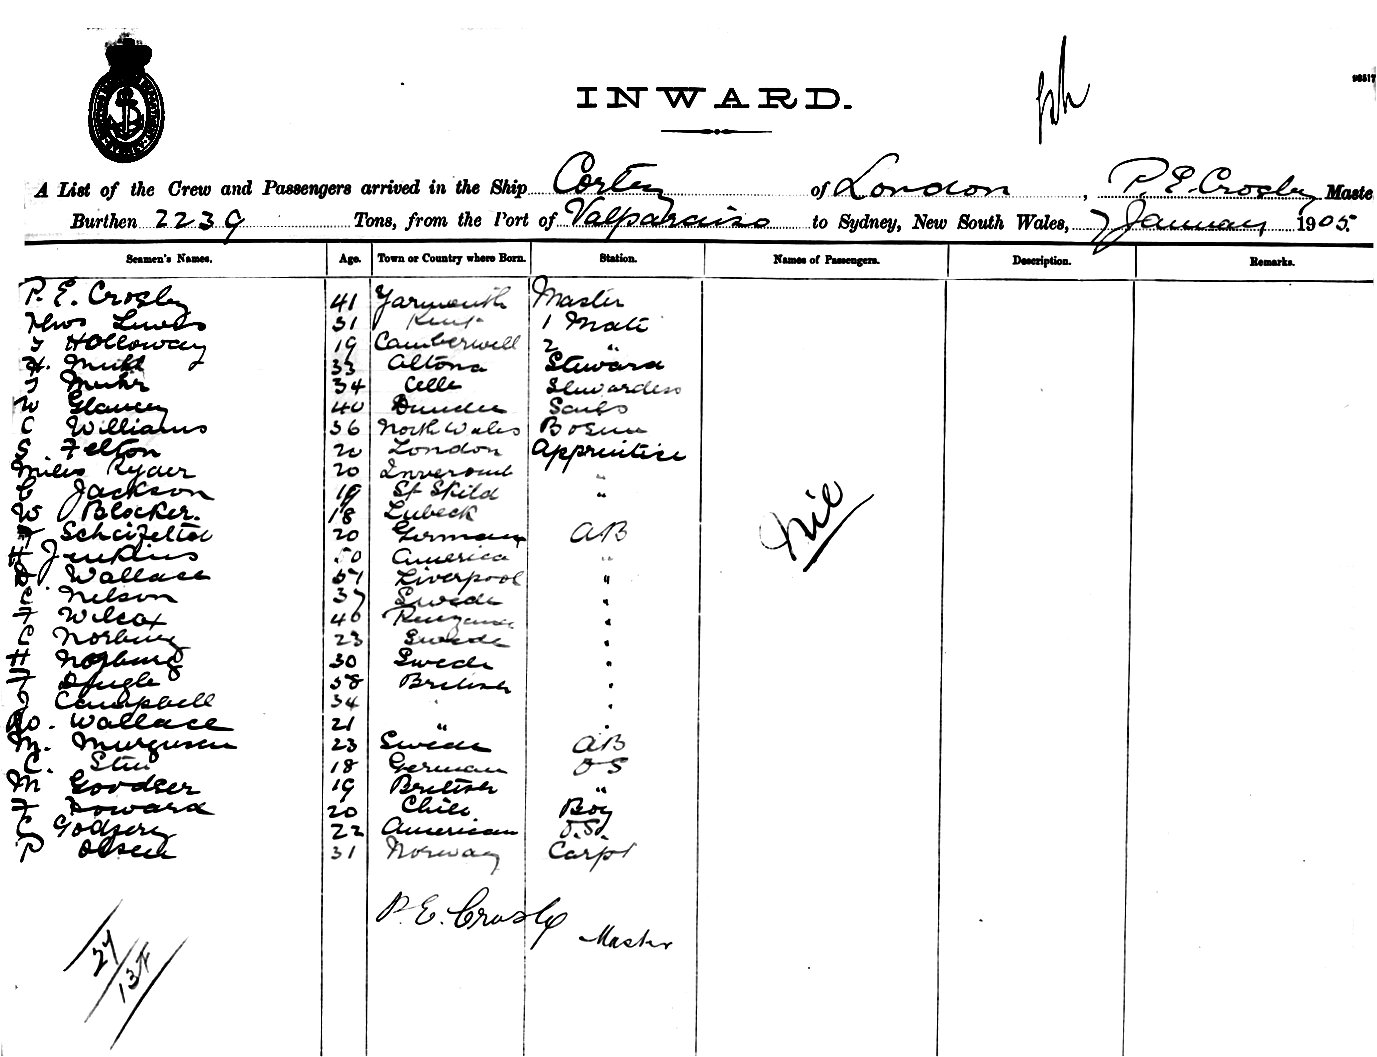 INWARD.
A List of the Crew and Passengers arrived in the Ship of London, P. E. Crosby Maste
Burthen 2239 Tons, from the Port of Valparaiso to Sydney, New South Wales, 7 January 1905.
Seamen's Names. Age. Town or Country where Born. Station. Names of Passengers. Description. Remarks.
P. E. Crosby 41 Yarmouth Master
Thos Lewis 31 1 Mate
Holloway 19 Camberwell 2 "
H. 33 Altona Steward
Muhr 34 Celle Stewardess
W 40 Dundee
C Williams 36 North Wales Bosun
S. Felton 20 London Apprentice
Miles Ryder 20 "
Jackson 19 "
W Blocker. 18 Lubeck
20 German AB
H Jenkins 50 America "
Wallace Liverpool "
C. Nelson 37 Swede "
F Wilcox 40 "
C Norburg 23 Swede "
H Norburg 30 Swede "
F 58 British "
J Campbell 34 " "
Wallace 21 " "
M. 23 Swede AB
C. 18 German OS
M 19 British "
F 20 Chili Boy
C 22 American O.S.
P Olsen 31 Norway Carpt
nil
P. E. Crosby
Master